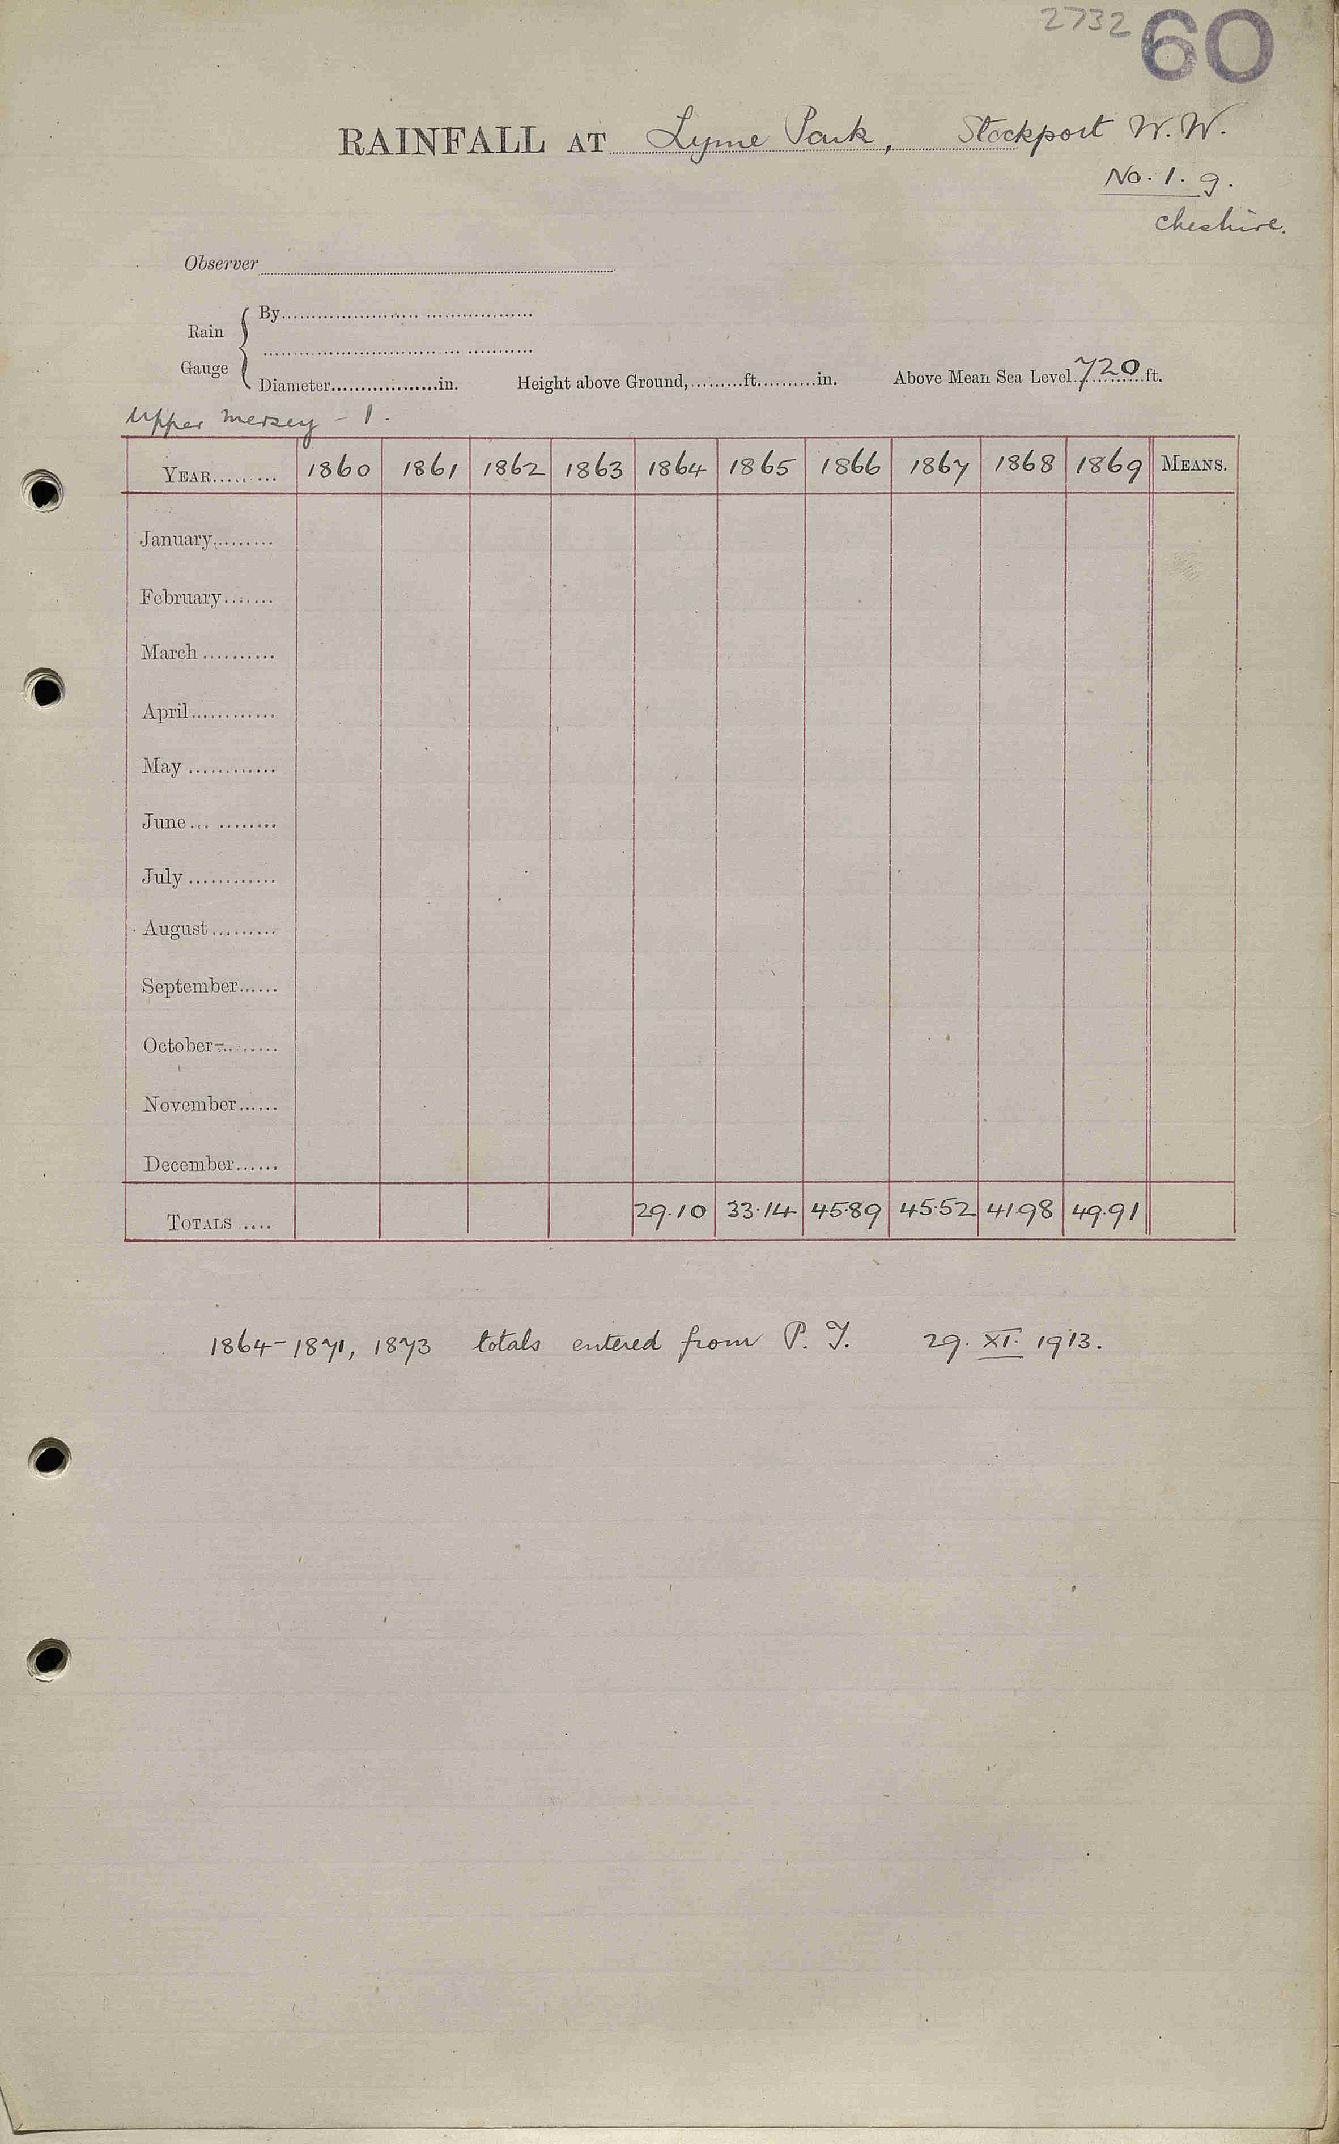 2732 60
RAINFALL AT Lyme Park, Stockport W.W.
No. 1. g.
Cheshire.
Observer
Rain Gauge { By
Diameter in. Height above Ground, ft. in. Above Mean Sea Level 720 ft.
Upper Mersey - 1.
YEAR 1860 1861 1862 1863 1864 1865 1866 1867 1868 1869 MEANS.
January
February
March
April
May
June
July
August
September
October
November
December
TOTALS 29.10 33.14 45.89 45.52 41.98 49.91
1864-1871, 1873 totals entered from P. T. 29. XI. 1913.